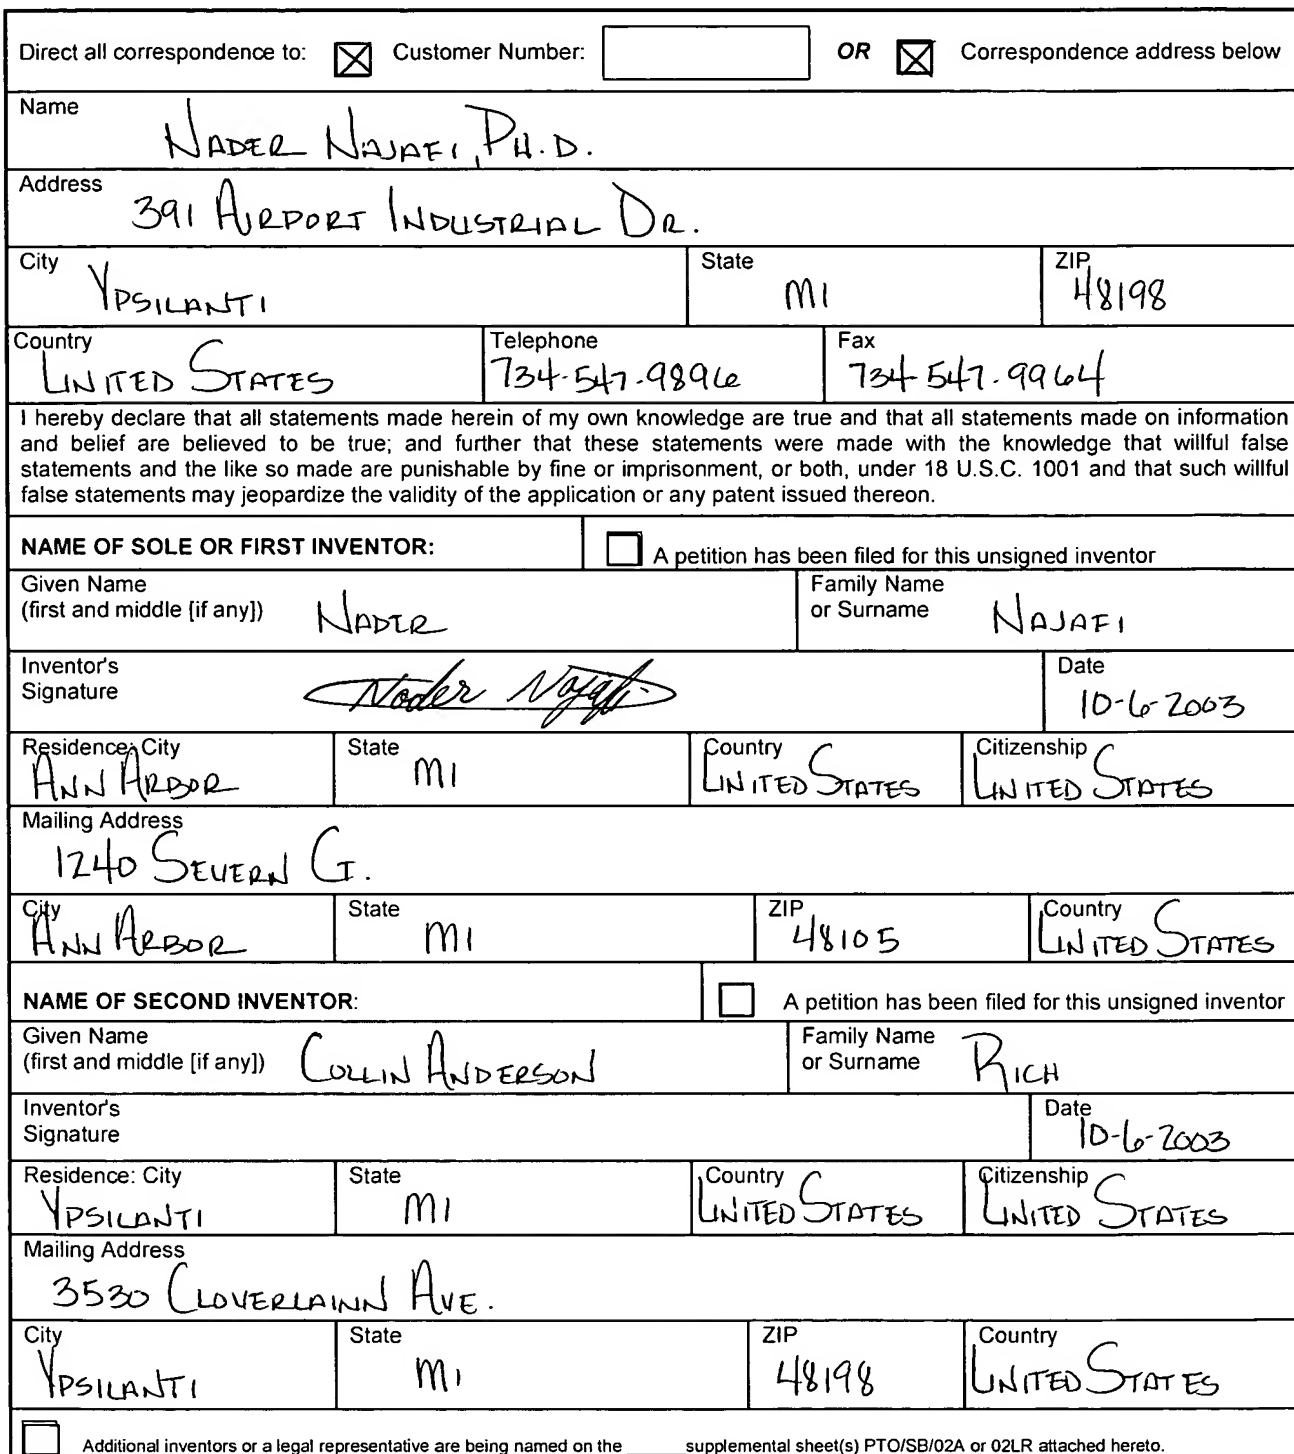 Direct all correspondence to: ☒ Customer Number: OR ☒ Correspondence address below
Name
NADER NAJAFI, PH.D.
Address
391 AIRPORT INDUSTRIAL DR.
City State ZIP
YPSILANTI MI 48198
Country Telephone Fax
UNITED STATES 734-547-9896 734-547-9964
I hereby declare that all statements made herein of my own knowledge are true and that all statements made on information
and belief are believed to be true; and further that these statements were made with the knowledge that willful false
statements and the like so made are punishable by fine or imprisonment, or both, under 18 U.S.C. 1001 and that such willful
false statements may jeopardize the validity of the application or any patent issued thereon.
NAME OF SOLE OR FIRST INVENTOR: ☐ A petition has been filed for this unsigned inventor
Given Name Family Name
(first and middle [if any]) NADER or Surname NAJAFI
Inventor's Date
Signature Nader Najafi 10-6-2003
Residence: City State Country Citizenship
ANN ARBOR MI UNITED STATES UNITED STATES
Mailing Address
1240 SEVERN CT.
City State ZIP Country
ANN ARBOR MI 48105 UNITED STATES
NAME OF SECOND INVENTOR: ☐ A petition has been filed for this unsigned inventor
Given Name Family Name
(first and middle [if any]) COLLIN ANDERSON or Surname RICH
Inventor's Date
Signature 10-6-2003
Residence: City State Country Citizenship
YPSILANTI MI UNITED STATES UNITED STATES
Mailing Address
3530 CLOVERLAWN AVE.
City State ZIP Country
YPSILANTI MI 48198 UNITED STATES
☐ Additional inventors or a legal representative are being named on the ______supplemental sheet(s) PTO/SB/02A or 02LR attached hereto.